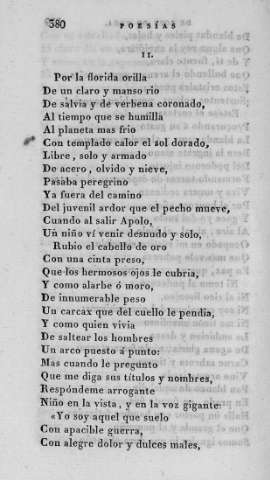 380 POESÍAS
II.
Por la florida orilla
De un claro y manso rio
De salvia y de verbena coronado,
Al tiempo que se humilla
Al planeta mas frio
Con templado calor el sol dorado,
Libre, solo y armado
De acero, olvido y nieve,
Pasaba peregrino
Ya fuera del camino
Del juvenil ardor que el pecho mueve,
Cuando al salir Apolo,
Un niño ví venir desnudo y solo,
Rubio el cabello de oro
Con una cinta preso,
Que los hermosos ojos le cubria,
Y como alarbe ó moro,
De innumerable peso
Un carcax que del cuello le pendia,
Y como quien vivia
De saltear los hombres
Un arco puesto á punto:
Mas cuando le pregunto
Que me diga sus títulos y nombres,
Respóndeme arrogante
Niño en la vista, y en la voz gigante:
«Yo soy aquel que suelo
Con apacible guerra,
Con alegre dolor y dulces males,